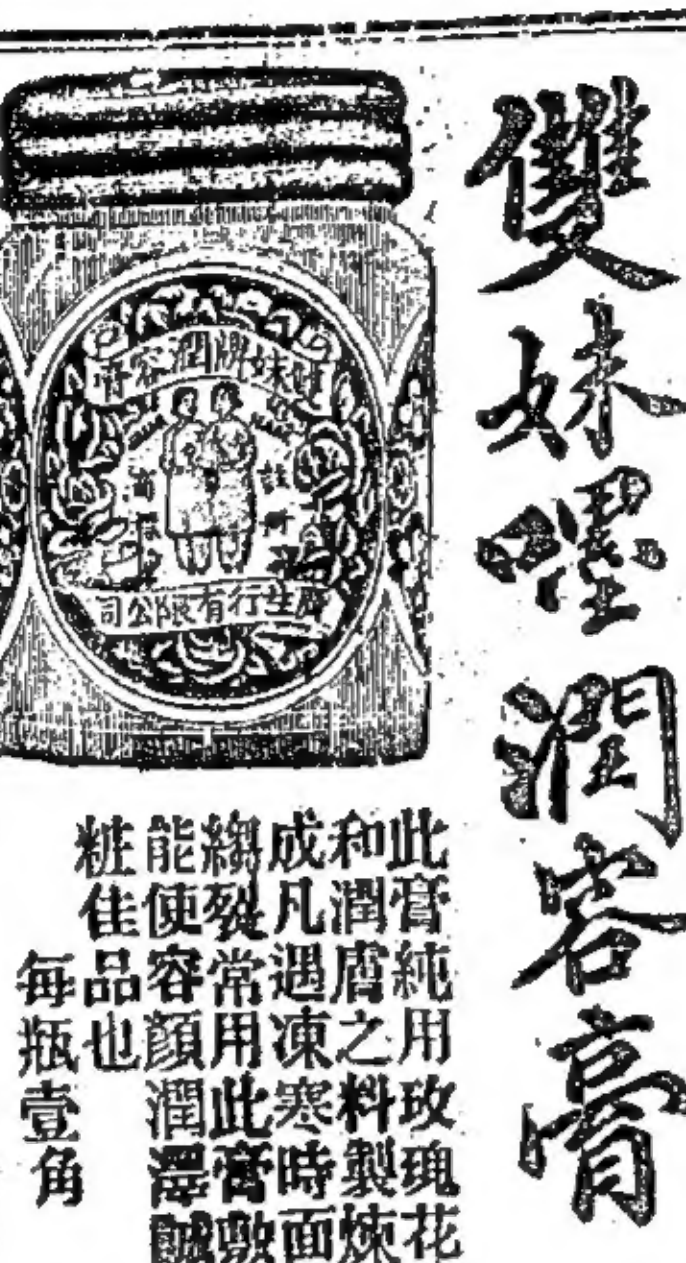 雙妹嚜潤容膏
雙妹牌潤容膏
註冊
商標
廣生行有限公司
此膏純用玫瑰花
和潤膚之料製煉
成凡遇凍寒時面
縐裂常用此膏敷
能使容顏潤澤誠
粧佳品也
每瓶壹角